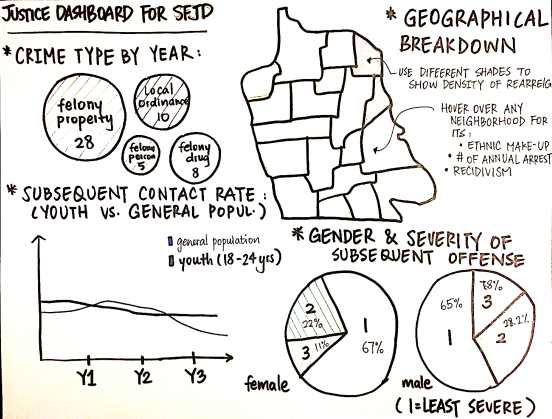 JUSTICE DASHBOARD FOR SFJD
* CRIME TYPE BY YEAR:
felony
property
28
Local
ordinance
10
felony
person
5
felony
drug
8
* GEOGRAPHICAL
BREAKDOWN
USE DIFFERENT SHADES TO
SHOW DENSITY OF REARREIG
HOVER OVER ANY
NEIGHBORHOOD FOR
ITS:
• ETHNIC MAKE-UP
• # OF ANNUAL ARREST
• RECIDIVISM
* SUBSEQUENT CONTACT RATE:
(YOUTH VS. GENERAL POPUL.)
general population
youth (18-24 yrs)
Y1 Y2 Y3
* GENDER & SEVERITY OF
SUBSEQUENT OFFENSE
2
22%
1
67%
3 11%
female
65%
1
3
28.2%
2
male
(1=LEAST SEVERE)